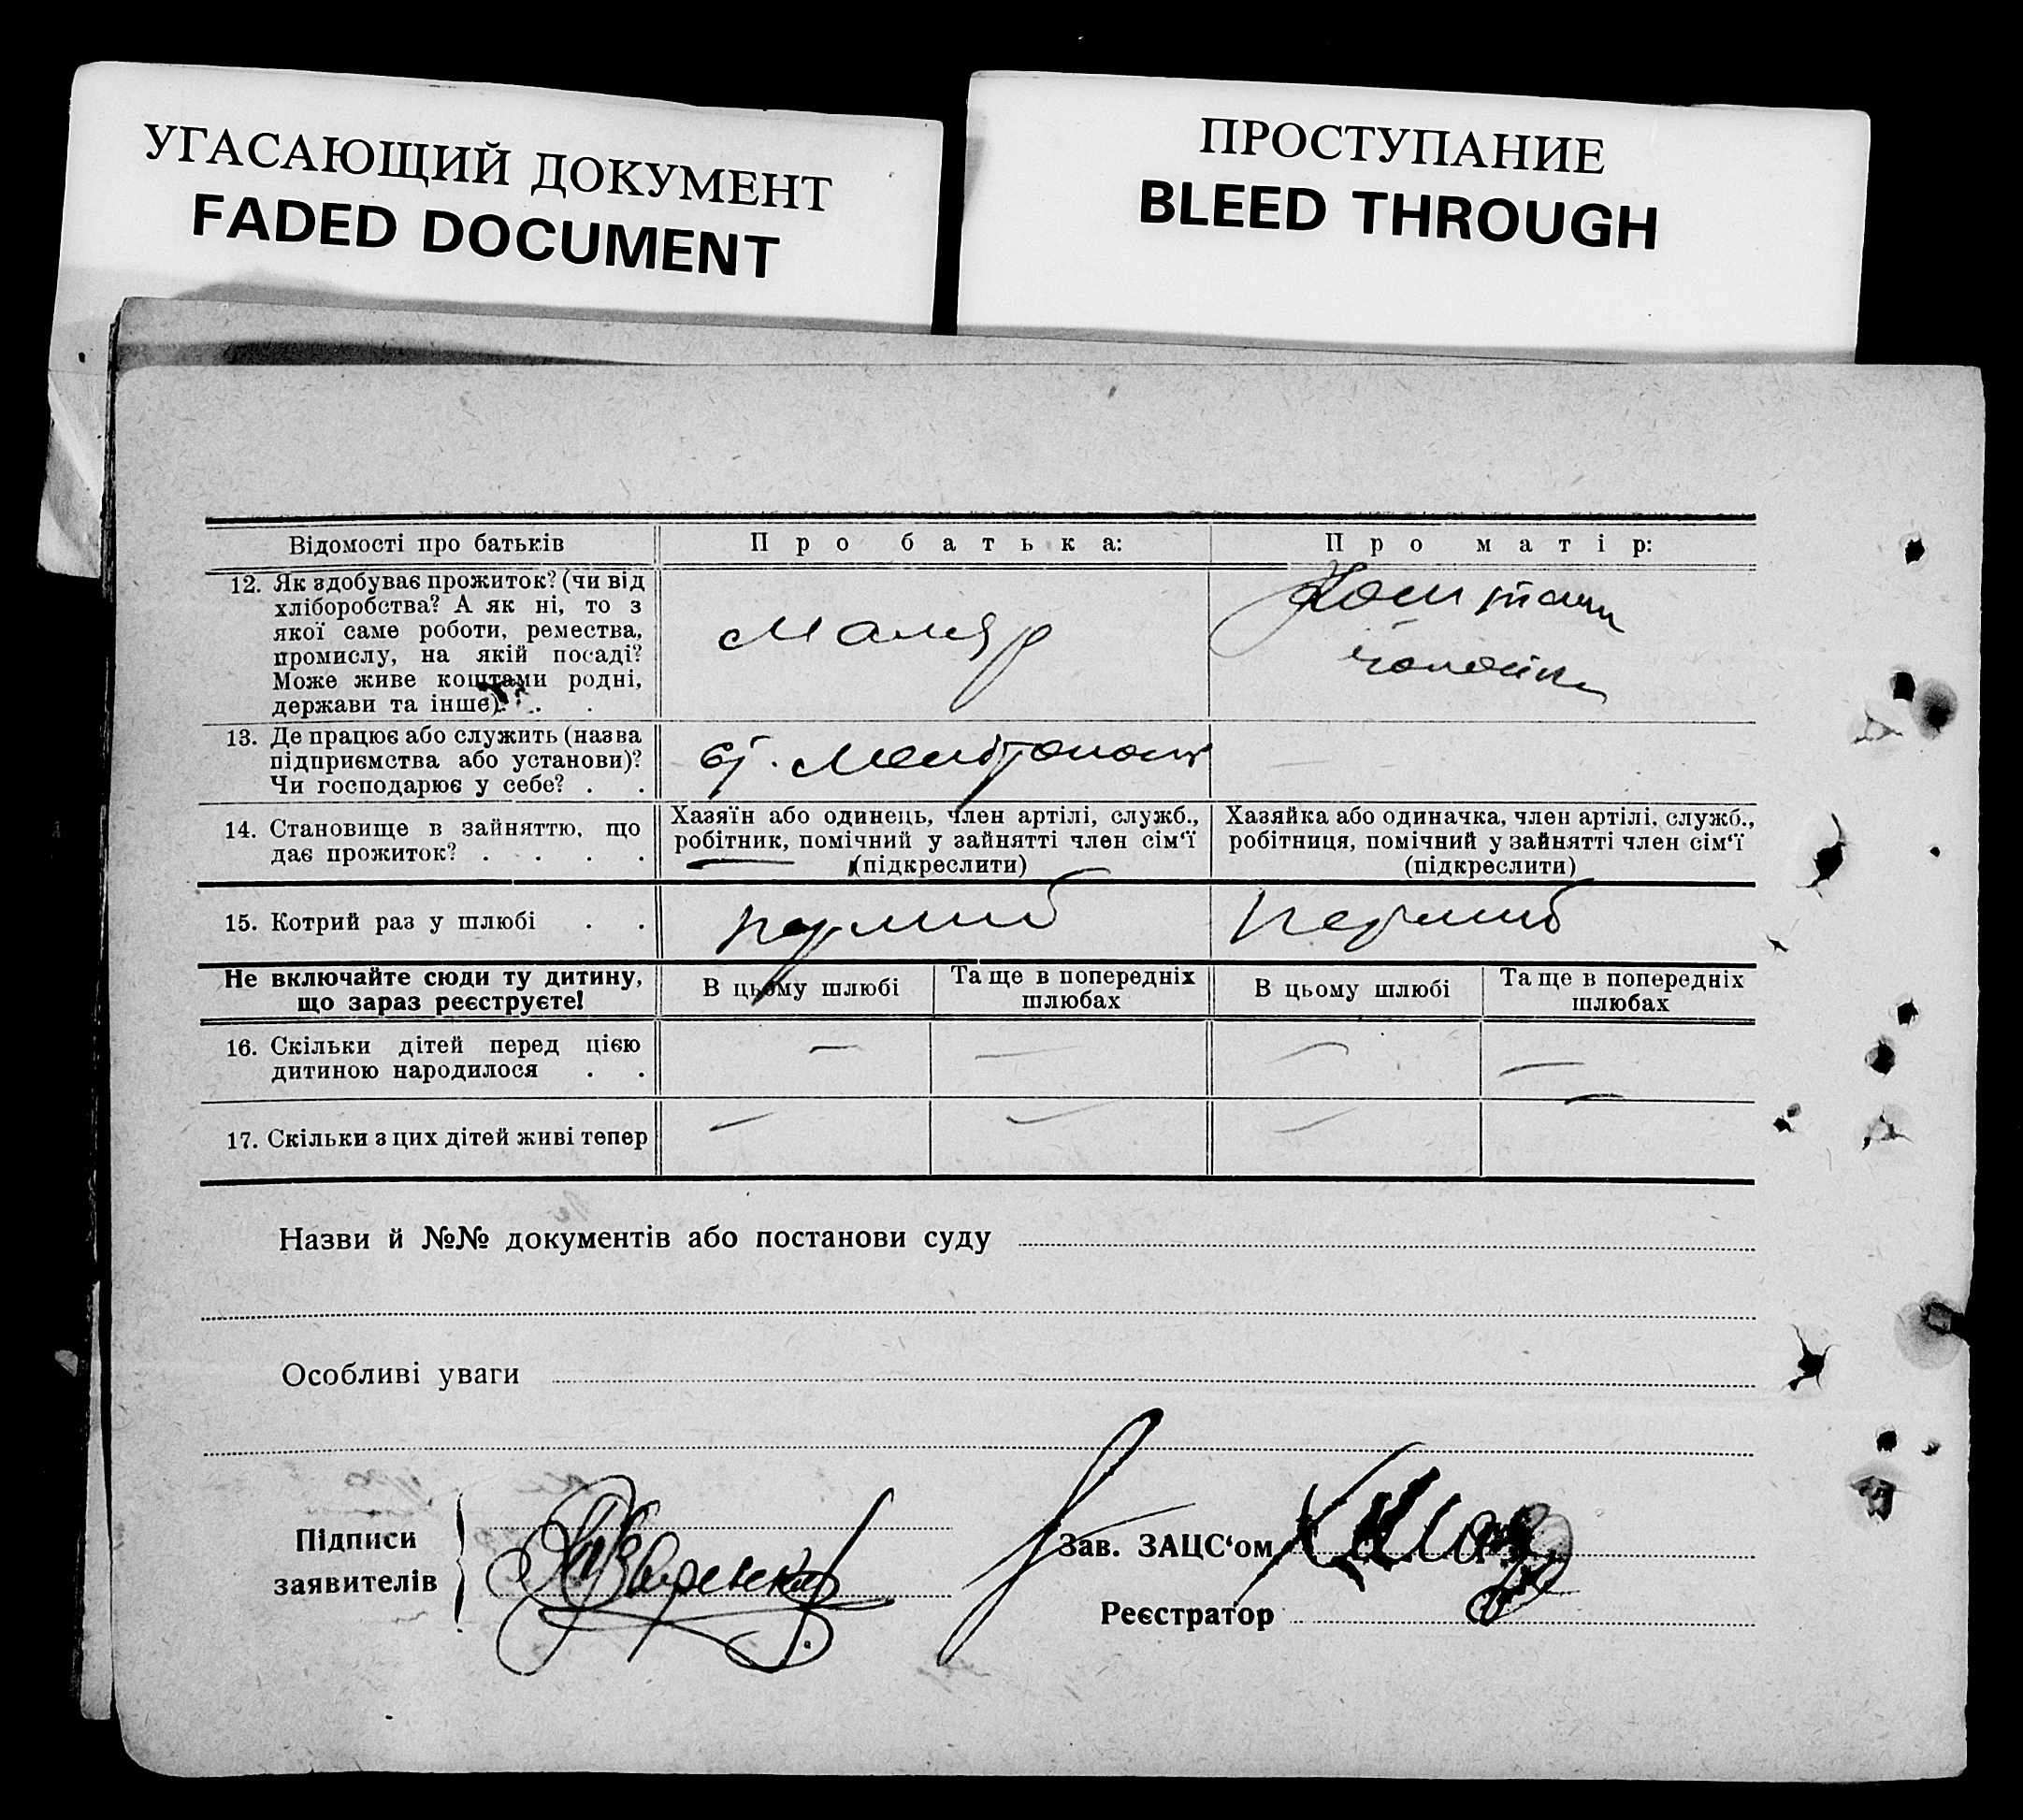 УГАСАЮЩИЙ ДОКУМЕНТ
FADED DOCUMENT
ПРОСТУПАНИЕ
BLEED THROUGH
Відомості про батьків
Про батька:
Про матір:
12. Як здобуває прожиток? (чи від
хліборобства? А як ні, то з
якої саме роботи, ремества,
промислу, на якій посаді?
Може живе коштами родні,
держави та інше)? . .
Маляр
Коштами
чоловіка
13. Де працює або служить (назва
підприємства або установи)?
Чи господарює у себе? . .
ст. Мелітополь
14. Становище в зайняттю, що
дає прожиток? . . . .
Хазяїн або одинець, член артілі, служб.,
робітник, помічний у зайнятті член сім‘ї
(підкреслити)
Хазяйка або одиначка, член артілі, служб.,
робітниця, помічний у зайнятті член сім‘ї
(підкреслити)
15. Котрий раз у шлюбі . .
перший
перший
Не включайте сюди ту дитину,
що зараз реєструєте!
В цьому шлюбі
Та ще в попередніх
шлюбах
В цьому шлюбі
Та ще в попередніх
шлюбах
16. Скільки дітей перед цією
дитиною народилося . .
— — — —
17. Скільки з цих дітей живі тепер
— — — —
Назви й №№ документів або постанови суду
Особливі уваги
Підписи
заявителів
Зав. ЗАЦС‘ом
Реєстратор